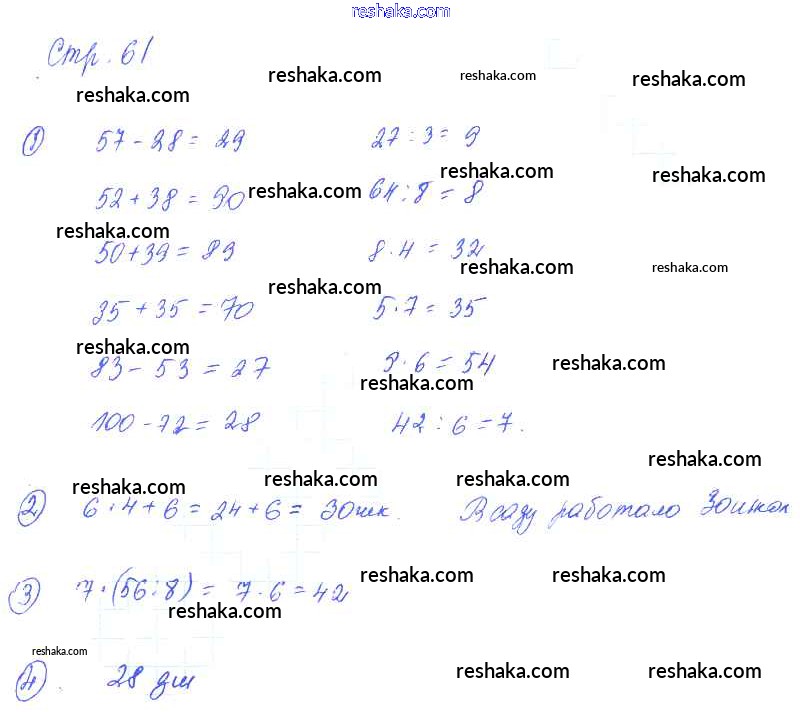 reshaka.com
Стр. 61
reshaka.com reshaka.com reshaka.com
reshaka.com
1 57 - 28 = 29 27 : 3 = 9
reshaka.com reshaka.com
52 + 38 = 90 reshaka.com 64 : 8 = 8
reshaka.com
50 + 39 = 89 8 · 4 = 32
reshaka.com reshaka.com
reshaka.com
35 + 35 = 70 5 · 7 = 35
reshaka.com
83 - 53 = 27 9 · 6 = 54 reshaka.com
reshaka.com
100 - 72 = 28 42 : 6 = 7.
reshaka.com
reshaka.com reshaka.com reshaka.com
2 6 · 4 + 6 = 24 + 6 = 30шк. В саду работало 30 школ
reshaka.com reshaka.com
3 7 · (56 : 8) = 7 · 6 = 42
reshaka.com
reshaka.com
4. 28 дм reshaka.com reshaka.com